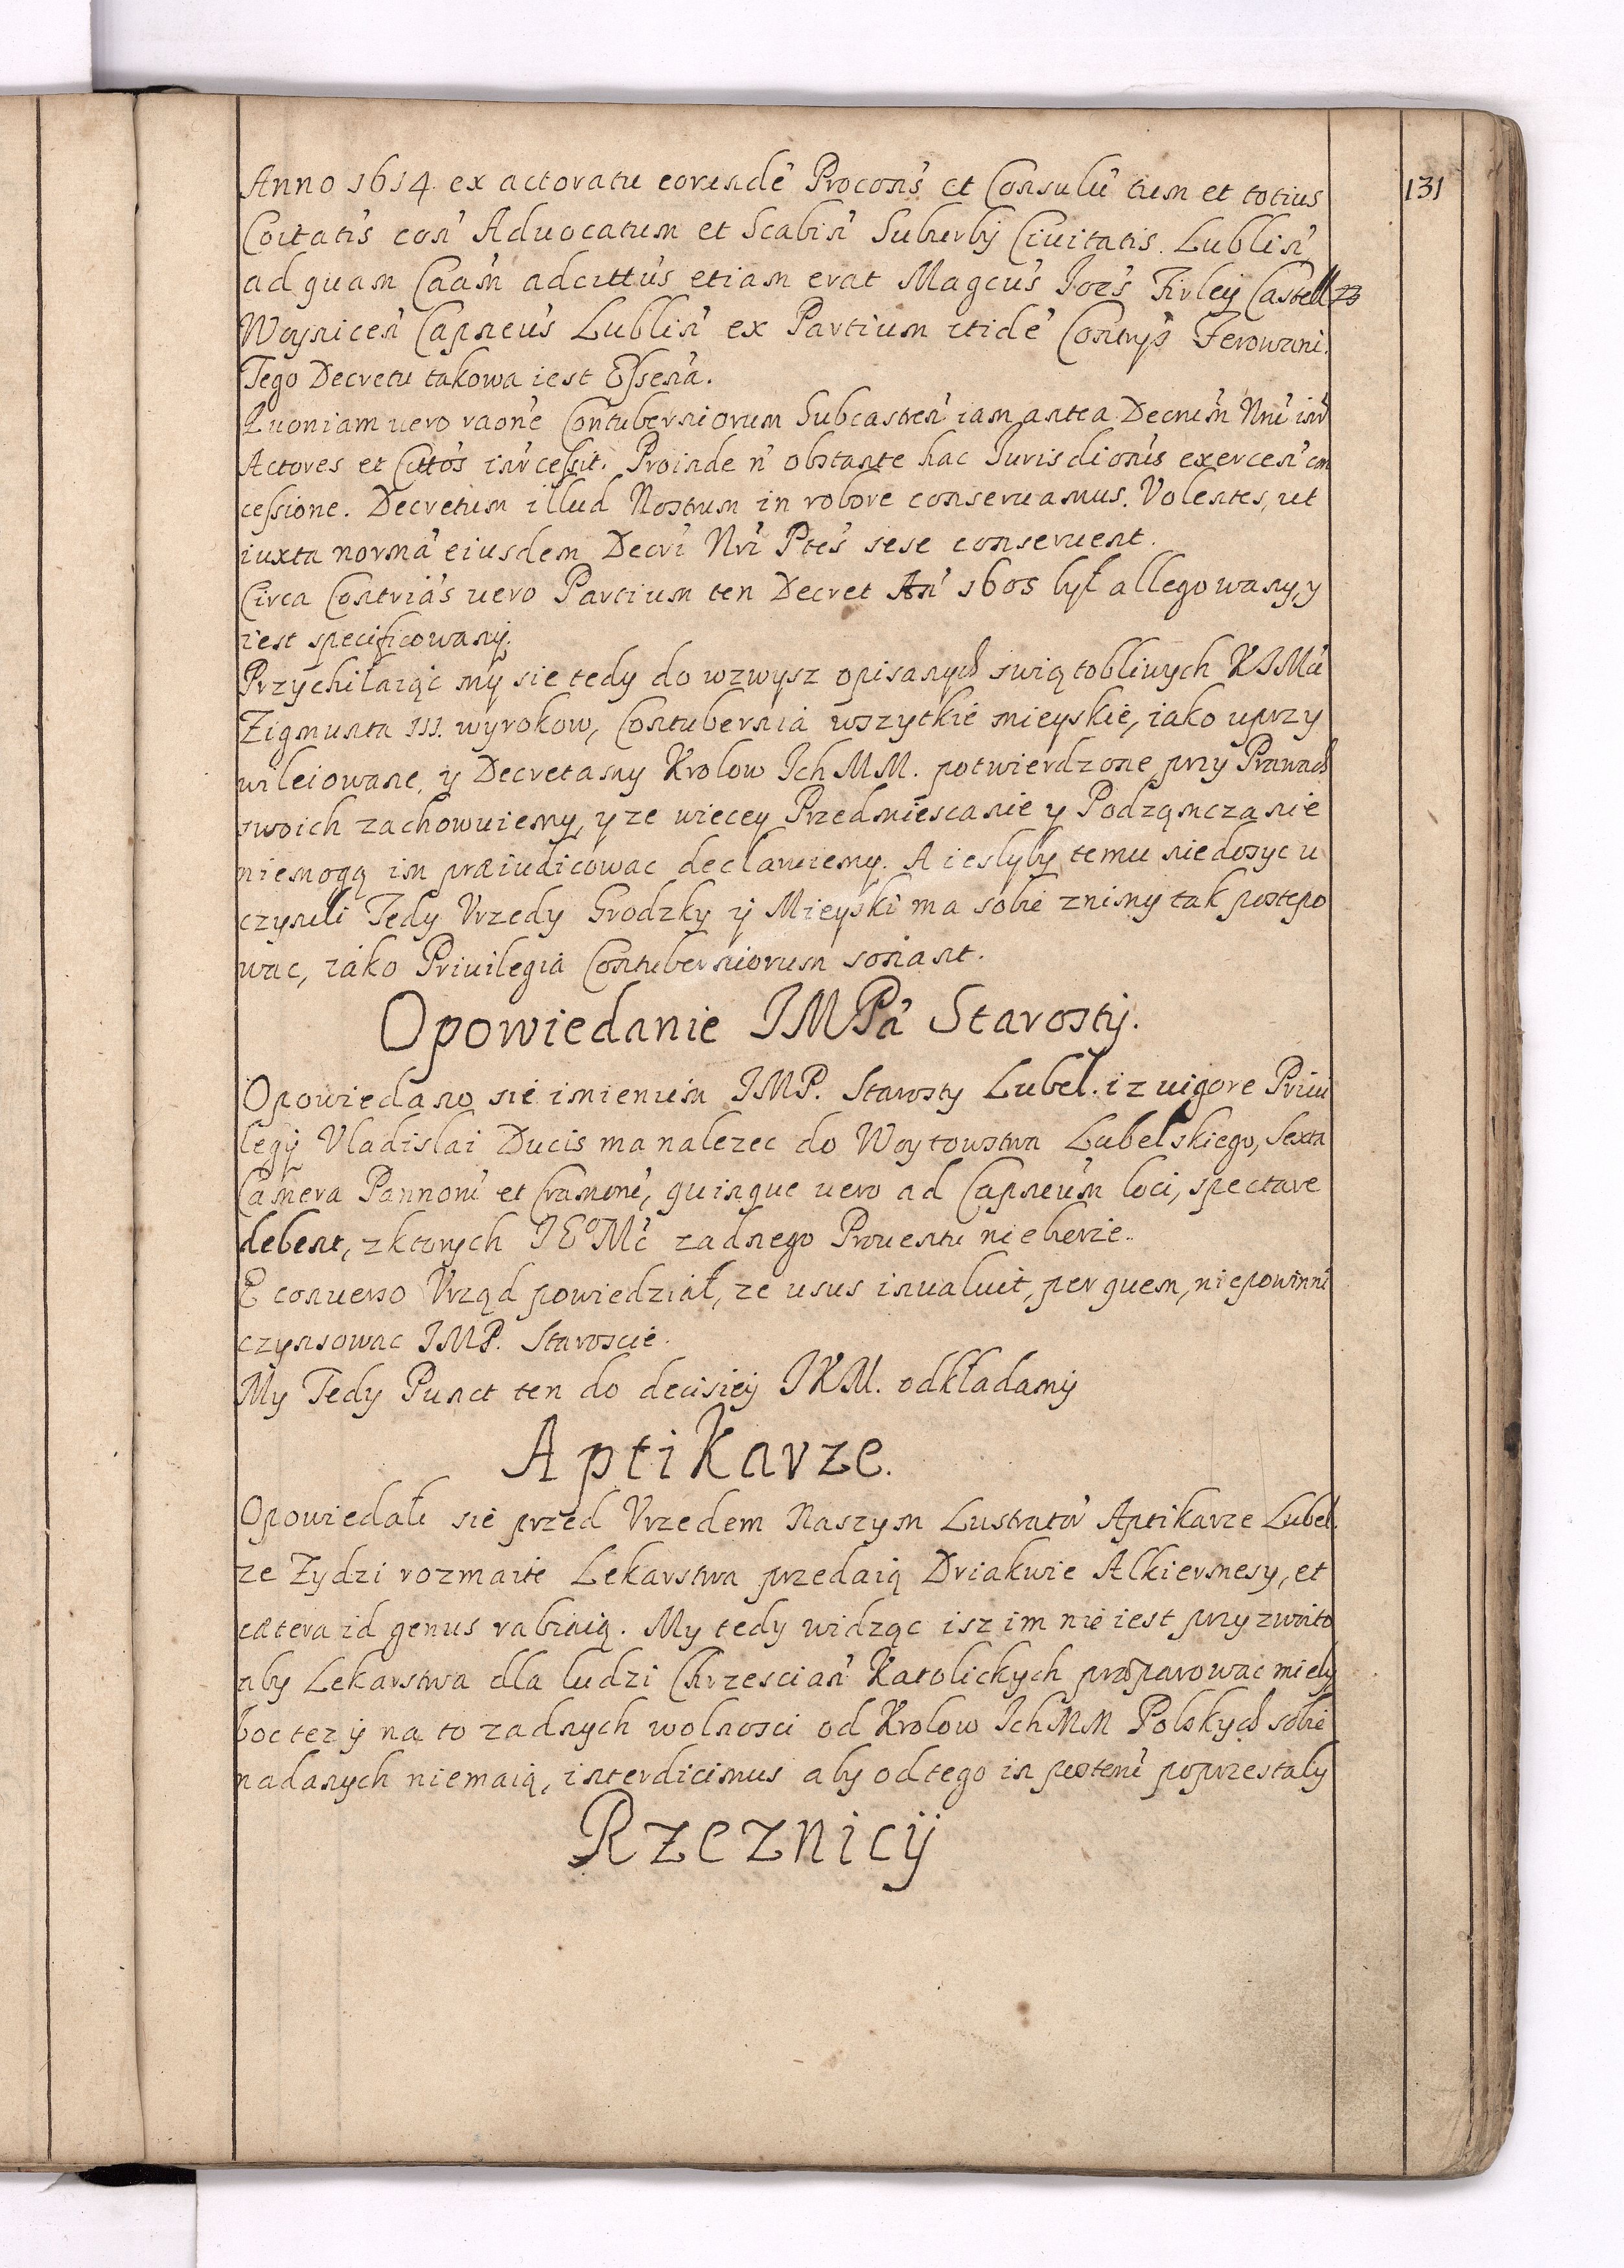 131
Anno 1614 ex actoratu eorundē Procons̄ et Consulū tum et totius
Coitatis con̄ Aduocatum et Scabin̄ Suburbÿ Ciuitatis Lublin̄
ad quam Caām adcittūs etiam erat Magcūs Joēs Firleÿ Castell
Woynicen̄ Capneūs Lublin̄ ex Partium itidē Contrȳs Ferowani.
Tego Decretu takowa iest Essenā.
Quoniam uero raōne Contuberniorum Subcastren̄ iam antea Decrūm Nrū inr̄
Actores et Cittōs inrcessit. Proinde n̄ obstante hac Jurisdionīs exercen̄ con
cessione. Decretum illud Nostrum in robore conseruamus. Volentes, ut
iuxta normā eiusdem Decrī Nrī Ptēs sese conseruent.
Circa Contriās uero Partium ten Decret An̄ 1605 był allegowany, y
iest specificowanÿ.
Przychilaiąc mÿ sie tedy do wzwysz opisanych swiątobliwych KJMći
Zigmunta III. wyrokow, Contubernia wszytkie mieyskie, iako uprzy
wileiowane, y Decretamy Krolow Ich MM. potwierdzone przy Prawach
swoich zachowuiemy, y ze wiecey Przedmiescanie y Podząmczanie
niemogą im præiudicowac declaruiemy. A iesłyby temu niedosyc u
czynili Tedy Vrzedy Grodzky ÿ Mieyski ma sobie znimy tak postepo
wac, iako Priuilegia Contuberniorum sonant.
Opowiedanie JMPā Starostÿ.
Opowiedano sie imieniem JMP. Starosty Lubel. iz uigore Priui
legÿ Vladislai Ducis ma nalezec do Woytowstwa Lubelskiego, Sexta
Camera Pannorū et Cramorū, quinque uero ad Capneūm loci, spectare
debent, zktorych JEoMć zadnego Prouentu niebierze.
E conuerso Vrząd powiedział, ze usus inualuit, per quem, niepowinni
czynsowac JMP. Staroscie.
My Tedy Punct ten do decisieÿ JKM. odkładamÿ
Aptikarze.
Opowiedali sie przed Vrzedem Naszym Lustrator̄ Aptikarze Lubel.
ze Zydzi rozmaite Lekarstwa przedaią Driakwie Alkiermesy, et
cætera id genus rabiaią. My tedy widząc isz im nie iest przyzwoito
aby Lekarstwa dla ludzi Chrzescian̄ Katolickych præparowac miely
boc tez ÿ na to zadnych wolnosci od Krolow Ich MM Polskych sobie
nadanych niemaią, interdicimus aby odtego in posterū poprzestaly
Rzeznicÿ